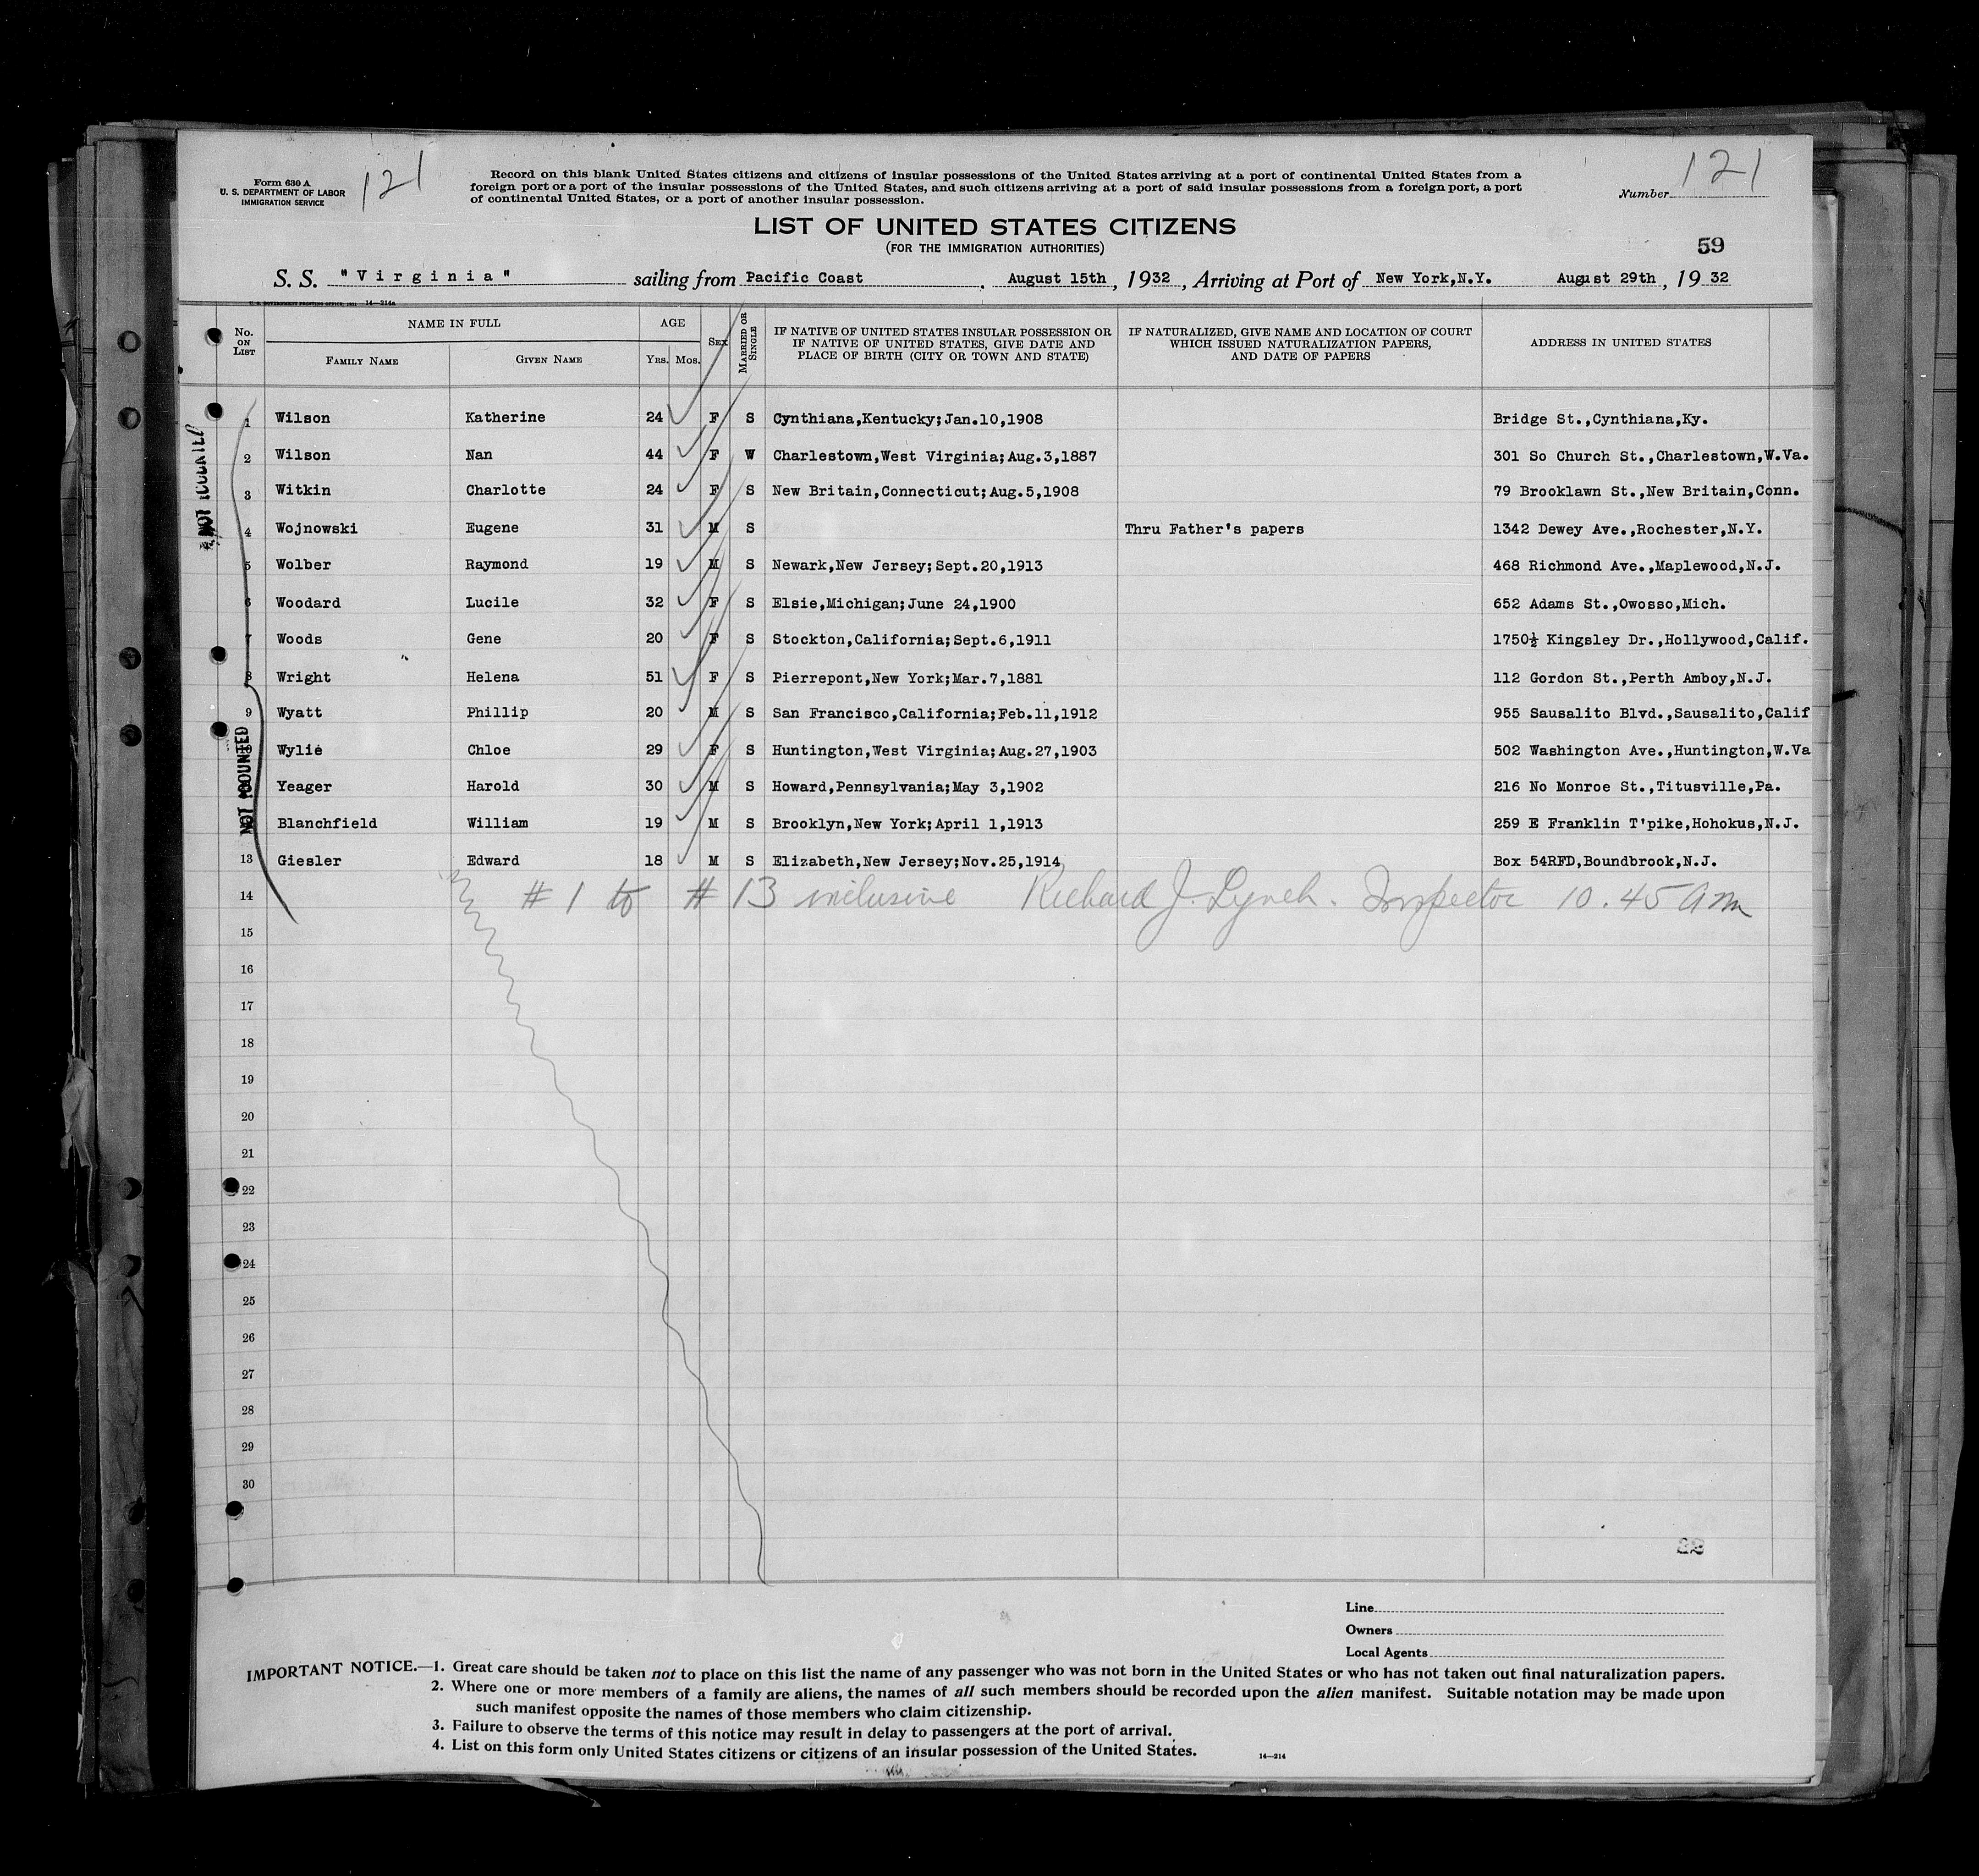 Form 630 A
U. S. DEPARTMENT OF LABOR
IMMIGRATION SERVICE
121
Record on this blank United States citizens and citizens of insular possessions of the United States arriving at a port of continental United States from a
foreign port or a port of the insular possessions of the United States, and such citizens arriving at a port of said insular possessions from a foreign port, a port
of continental United States, or a port of another insular possession.
Number 121
LIST OF UNITED STATES CITIZENS
(FOR THE IMMIGRATION AUTHORITIES)
59
S. S. "Virginia" sailing from Pacific Coast, August 15th, 1932, Arriving at Port of New York,N.Y. August 29th, 1932
U. S. GOVERNMENT PRINTING OFFICE, 1931 14—214a
No. ON LIST
NAME IN FULL
FAMILY NAME
GIVEN NAME
AGE
YRS. MOS.
SEX
MARRIED OR SINGLE
IF NATIVE OF UNITED STATES INSULAR POSSESSION OR
IF NATIVE OF UNITED STATES, GIVE DATE AND
PLACE OF BIRTH (CITY OR TOWN AND STATE)
IF NATURALIZED, GIVE NAME AND LOCATION OF COURT
WHICH ISSUED NATURALIZATION PAPERS,
AND DATE OF PAPERS
ADDRESS IN UNITED STATES
1 Wilson Katherine 24 F S Cynthiana,Kentucky;Jan.10,1908 Bridge St.,Cynthiana,Ky.
2 Wilson Nan 44 F W Charlestown,West Virginia;Aug.3,1887 301 So Church St.,Charlestown,W.Va.
3 Witkin Charlotte 24 F S New Britain,Connecticut;Aug.5,1908 79 Brooklawn St.,New Britain,Conn.
4 Wojnowski Eugene 31 M S Thru Father's papers 1342 Dewey Ave.,Rochester,N.Y.
5 Wolber Raymond 19 M S Newark,New Jersey;Sept.20,1913 468 Richmond Ave.,Maplewood,N.J.
6 Woodard Lucile 32 F S Elsie,Michigan;June 24,1900 652 Adams St.,Owosso,Mich.
7 Woods Gene 20 F S Stockton,California;Sept.6,1911 1750½ Kingsley Dr.,Hollywood,Calif.
8 Wright Helena 51 F S Pierrepont,New York;Mar.7,1881 112 Gordon St.,Perth Amboy,N.J.
9 Wyatt Phillip 20 M S San Francisco,California;Feb.11,1912 955 Sausalito Blvd.,Sausalito,Calif
10 Wylie Chloe 29 F S Huntington,West Virginia;Aug.27,1903 502 Washington Ave.,Huntington,W.Va
Yeager Harold 30 M S Howard,Pennsylvania;May 3,1902 216 No Monroe St.,Titusville,Pa.
Blanchfield William 19 M S Brooklyn,New York;April 1,1913 259 E Franklin T'pike,Hohokus,N.J.
13 Giesler Edward 18 M S Elizabeth,New Jersey;Nov.25,1914 Box 54RFD,Boundbrook,N.J.
NOT COUNTED
NOT COUNTED
14 #1 to #13 inclusive Richard J. Lynch. Inspector 10.45 am
15
16
17
18
19
20
21
22
23
24
25
26
27
28
29
30
Line
Owners
Local Agents
IMPORTANT NOTICE.—1. Great care should be taken not to place on this list the name of any passenger who was not born in the United States or who has not taken out final naturalization papers.
2. Where one or more members of a family are aliens, the names of all such members should be recorded upon the alien manifest. Suitable notation may be made upon
such manifest opposite the names of those members who claim citizenship.
3. Failure to observe the terms of this notice may result in delay to passengers at the port of arrival.
4. List on this form only United States citizens or citizens of an insular possession of the United States.
14—214